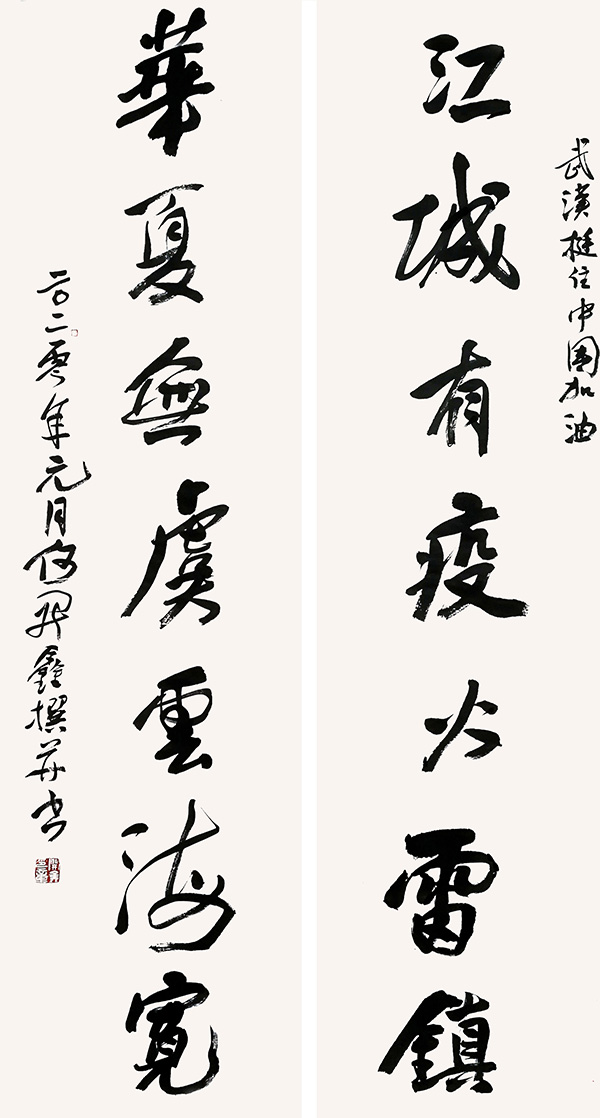 武漢挺住中国加油
江城有疫火雷鎮
華夏無虞雲海寬
二〇二零年元月何開鑫撰并书